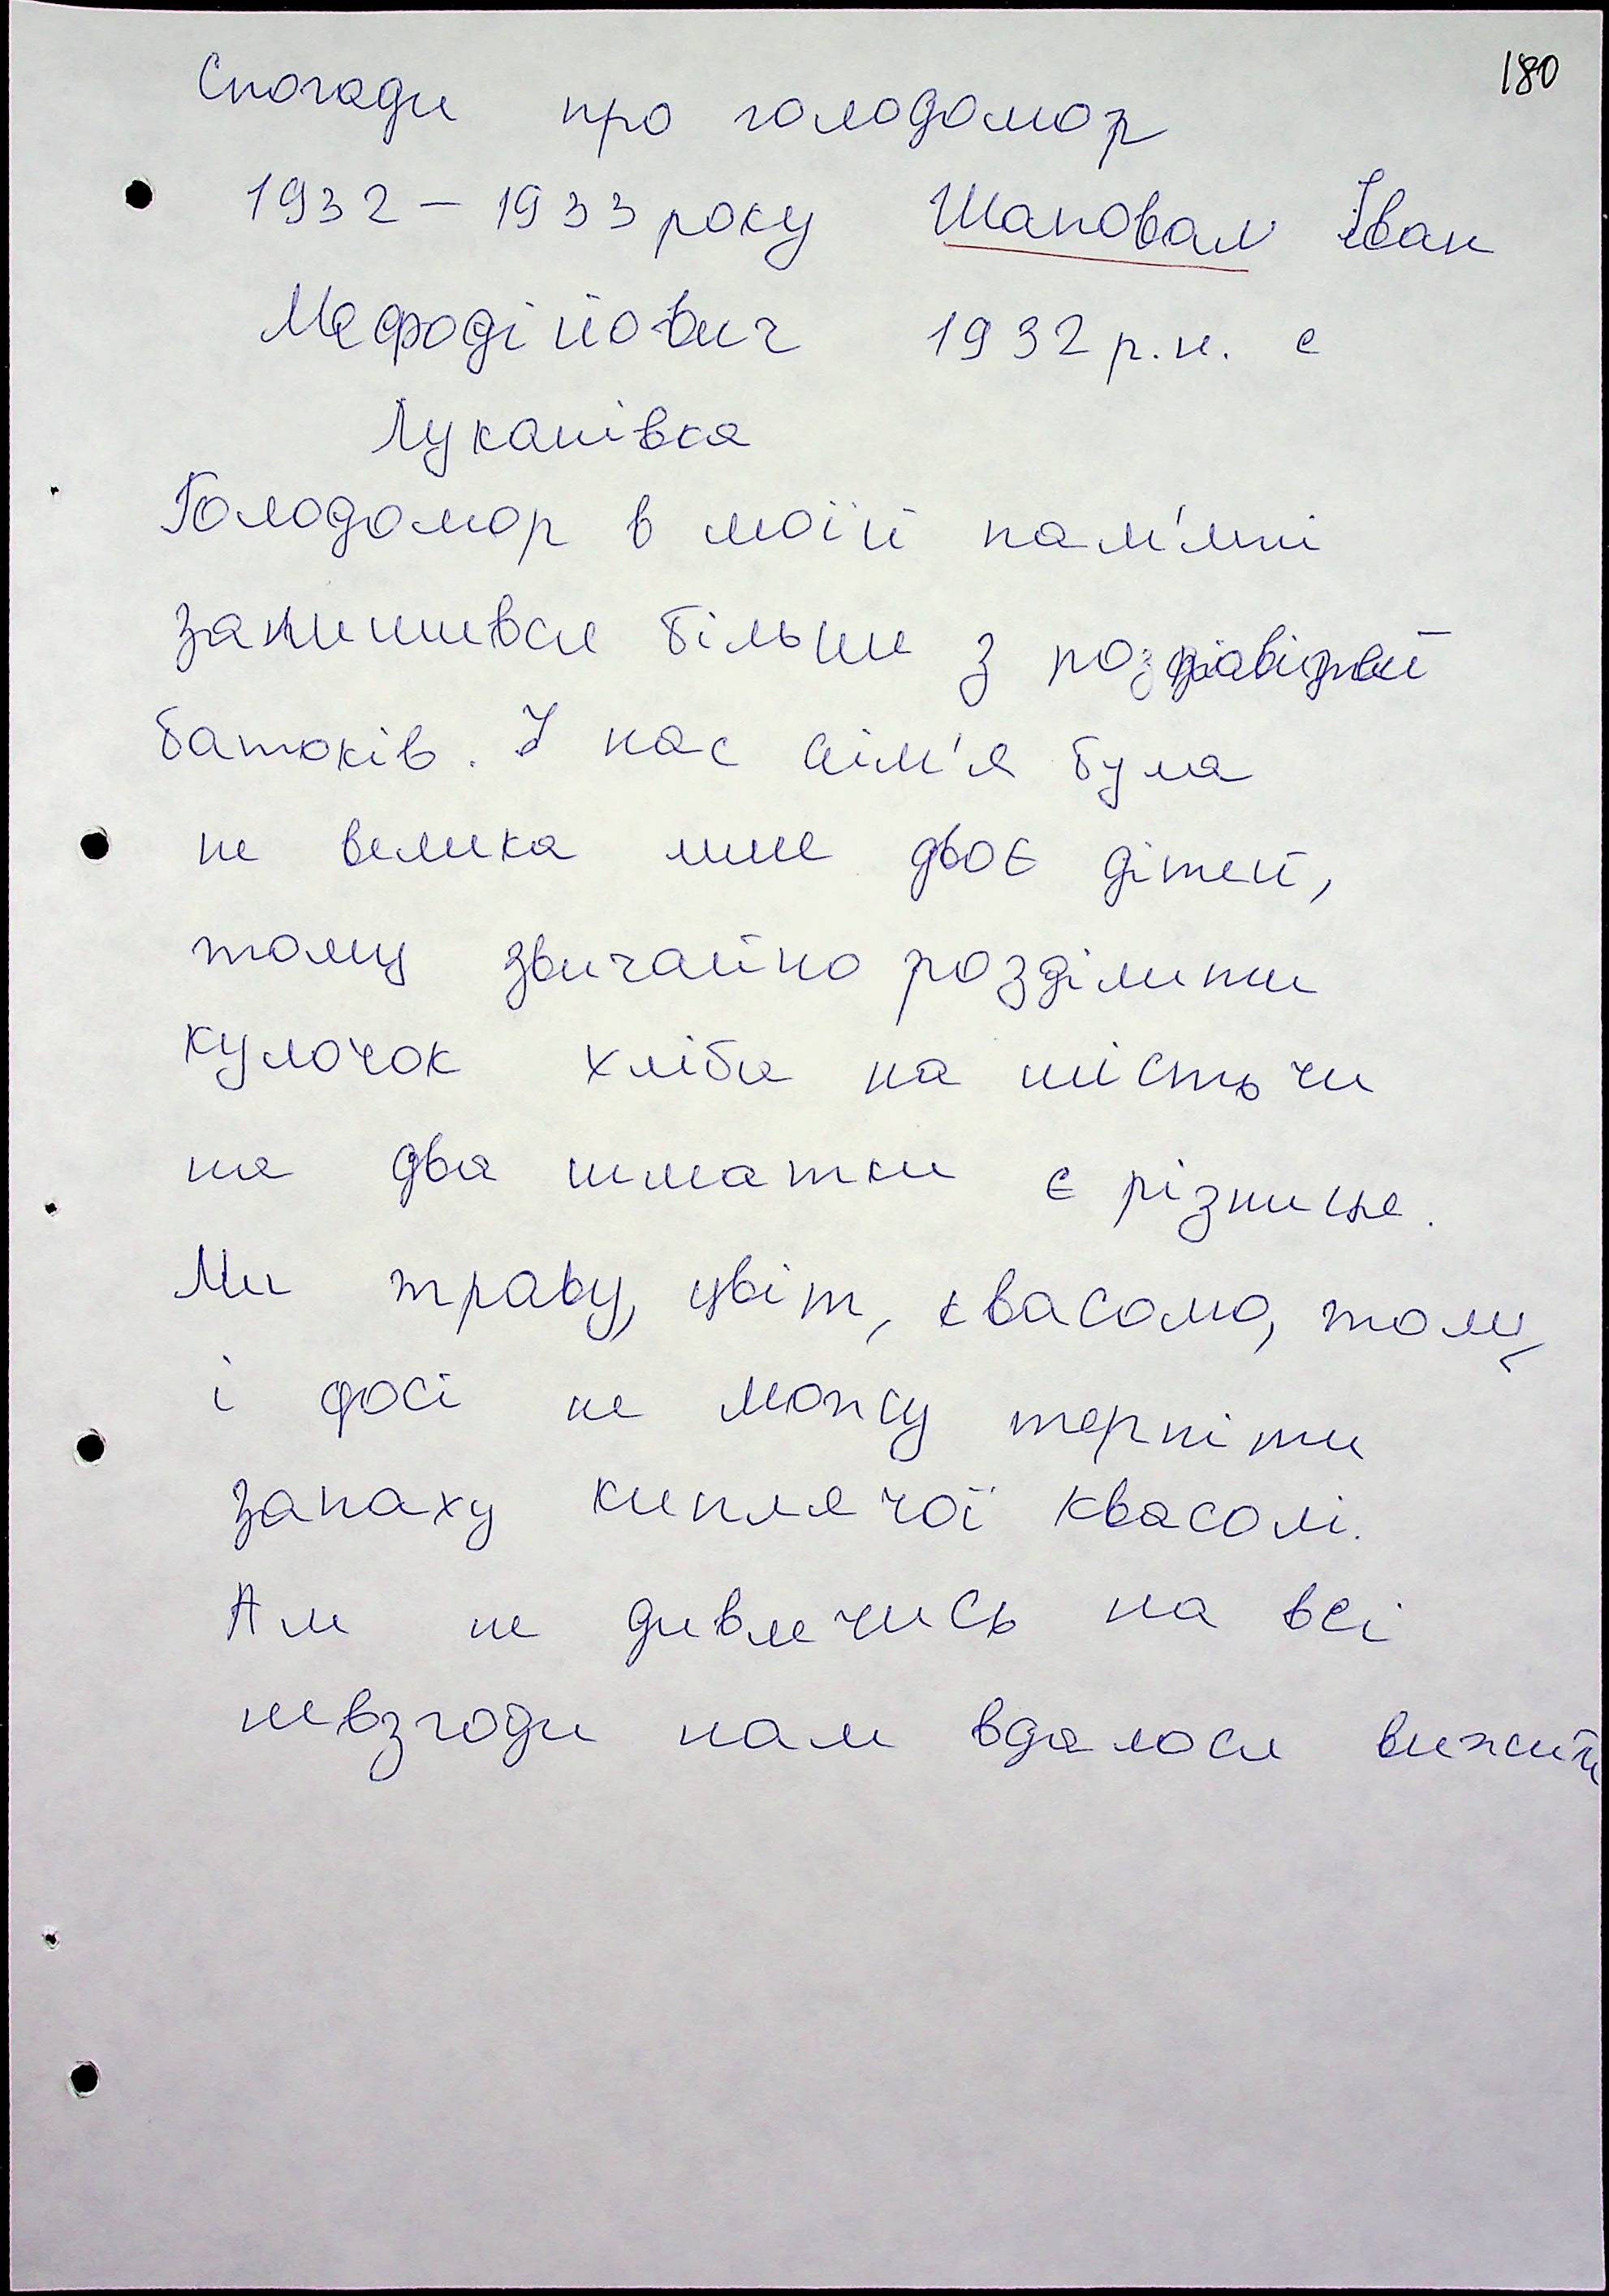 180
Спогади про голодомор
1932 – 1933 року Шаповал Іван
Мефодійович 1932 р.н. с
Лукашівка
Голодомор в моїй пам'яті
залишився більше з
батьків. У нас сім'я була
не велика лише двоє дітей,
тому звичайно розділити
кулочок хліба на шість чи
на два шматки є різниця.
Ми траву, цвіт, квасолю, тому
і досі не можу терпіти
запаху киплячої квасолі.
Але не дивлячись на всі
невзгоди нам вдалося вижити